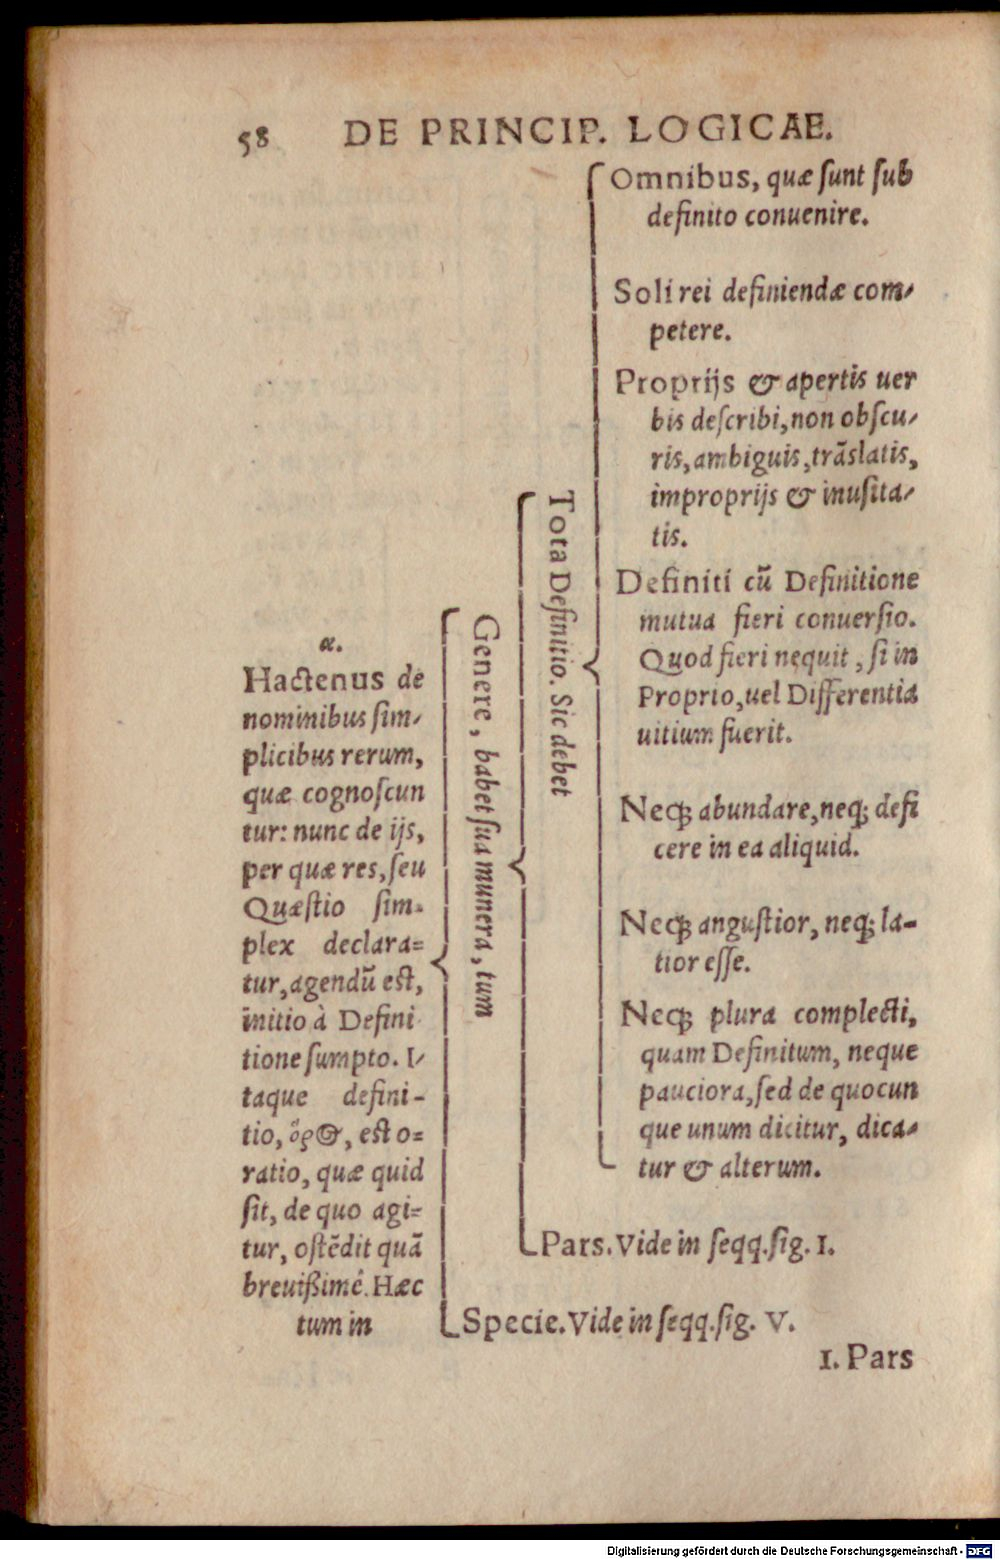 58 DE PRINCIP. LOGICAE.
α.
Hactenus de
nominibus sim-
plicibus rerum,
quæ cognoscun
tur: nunc de ijs,
per quæ res, seu
Quæstio sim-
plex declara=
tur, agendū est,
initio à Defini
tione sumpto. I-
taque defini-
tio, ὅρος, est o=
ratio, quæ quid
sit, de quo agi=
tur, ostēdit quā
breuißimè. Hæc
tum in
Genere, habet sua munera, tum
Tota Definitio. Sic debet
Omnibus, quæ sunt sub
definito conuenire.
Soli rei definiendæ com-
petere.
Proprijs & apertis uer
bis describi, non obscu-
ris, ambiguis, trāslatis,
improprijs & inusita-
tis.
Definiti cū Definitione
mutua fieri conuersio.
Quod fieri nequit, si in
Proprio, uel Differentia
uitium fuerit.
Neq; abundare, neq; defi
cere in ea aliquid.
Neq; angustior, neq; la-
tior esse.
Neq; plura complecti,
quam Definitum, neque
pauciora, sed de quocun
que unum dicitur, dica-
tur & alterum.
Pars. Vide in seqq. sig. I.
Specie. Vide in seqq. sig. V.
I. Pars
Digitalisierung gefördert durch die Deutsche Forschungsgemeinschaft - DFG